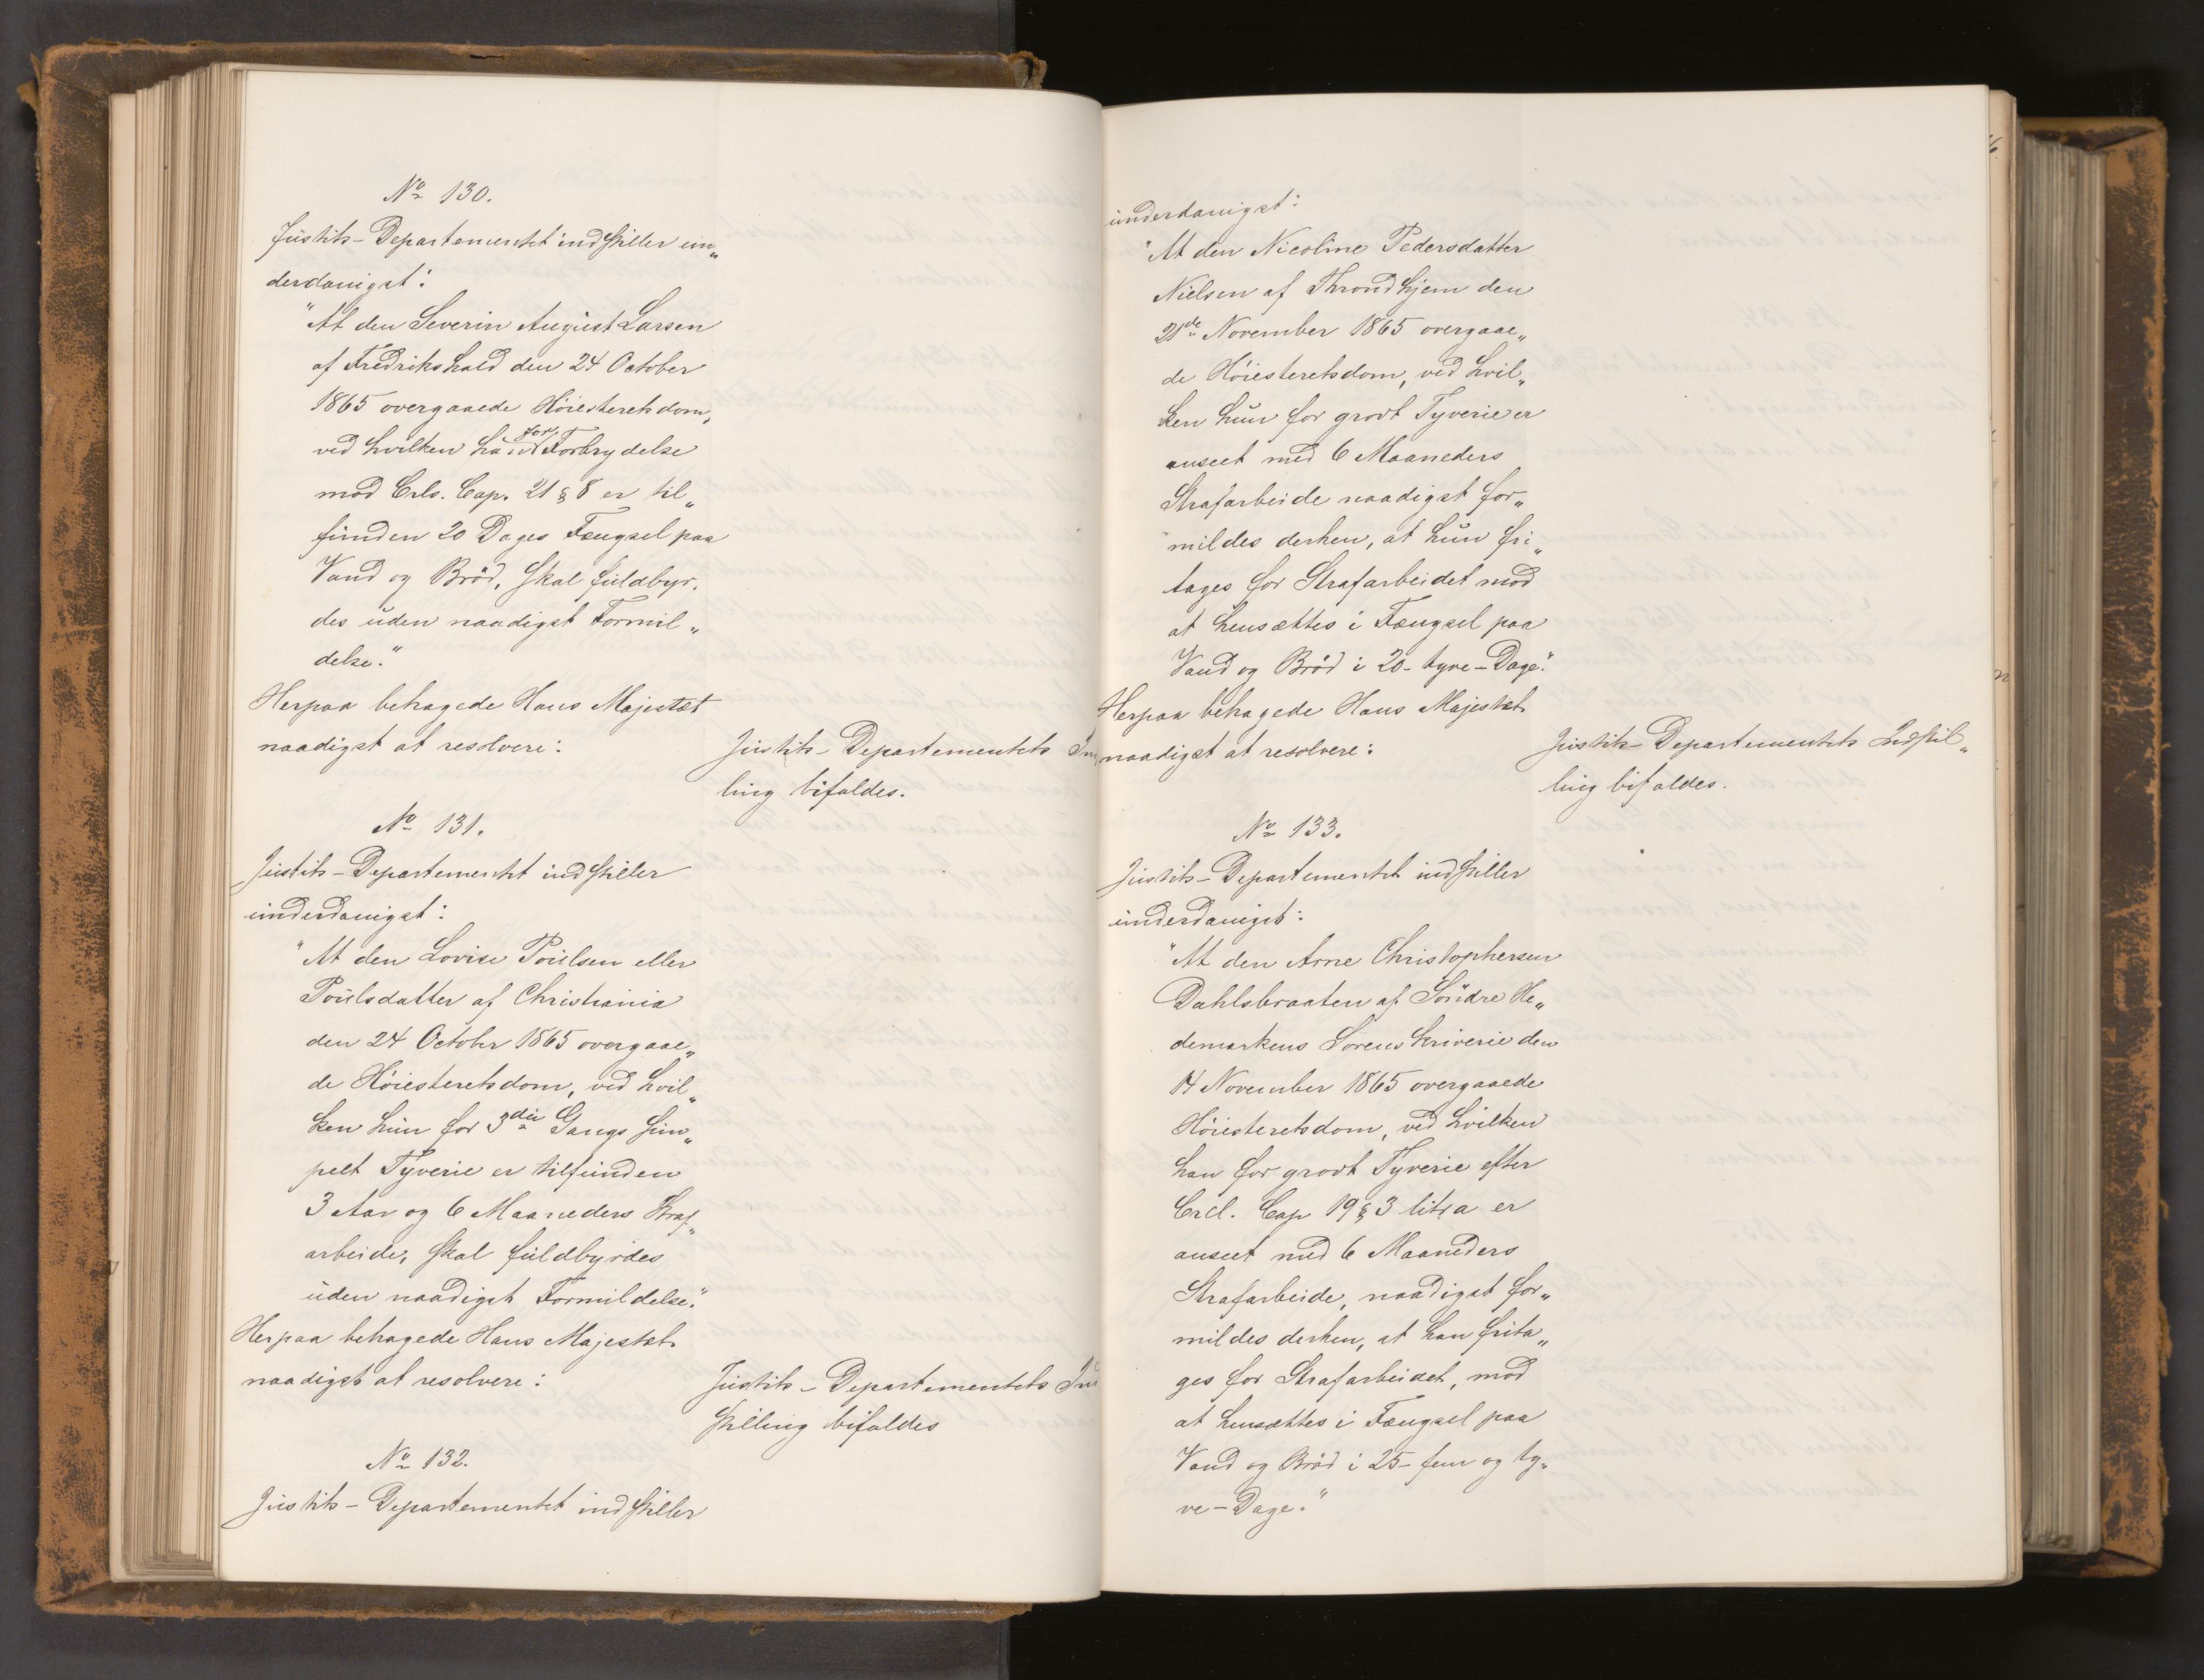 No 130.
Justits-Departementet indstiller un„
derdanigst:
"At den Severin August Larsen
af Fredrikshald den 24 October
1865 overgaaede Höiesteretsdom,
ved hvilken han for Forbrydelse
mod Crls. Cap. 21 § 8 er til„
funden 20 Dages Fængsel paa
Vand og Bröd, skal fuldbyr„
des uden naadigst Formil„
delse."
Herpaa behagede Hans Majestæt
naadigst at resolvere:
Justits-Departementets In
ling bifaldes.
No 131.
Justits-Departementet indstiller
underdanigst:
"At den Lovise Poulsen eller
Poulsdatter af Christiania
den 24 October 1865 overgaae„
de Höiesteretsdom, ved hvil„
ken hun for 3die Gangs sim„
pelt Tyverie er tilfunden
3 Aar og 6 Maaneders Straf„
arbeide, skal fuldbyrdes
uden naadigst Formildelse."
Herpaa behagede Hans Majestæt
naadigst at resolvere:
Justits-Departementets In
stilling bifaldes
No 132.
Justits-Departementet indstiller
underdanigst:
"At den Nicoline Pedersdatter
Nielsen af Throndhjem den
21de November 1865 overgaae„
de Höiesteretsdom, ved hvil„
ken hun for grovt Tyverie er
anseet med 6 Maaneders
Strafarbeide naadigst for„
mildes derhen, at hun fri„
tages for Strafarbeidet mod
at hensættes i Fængsel paa
Vand og Bröd i 20-tyve-Dage."
Herpaa behagede Hans Majestæt
naadigst at resolvere:
Justits-Departementets Indstil„
ling bifaldes.
No 133.
Justits-Departementet indstiller
underdanigst:
"At den Arne Christophersen
Dahlsbraaten af Söndre He„
demarkens Sorenskriverie den
14 November 1865 overgaaede
Höiesteretsdom, ved hvilken
han for grovt Tyverie efter
Crcl. Cap 19 § 3 litra a er
anseet med 6 Maaneders
Strafarbeide, naadigst for„
mildes derhen, at han frita„
ges for Strafarbeidet, mod
at hensættes i Fængsel paa
Vand og Bröd i 25-fem og ty„
ve-Dage."